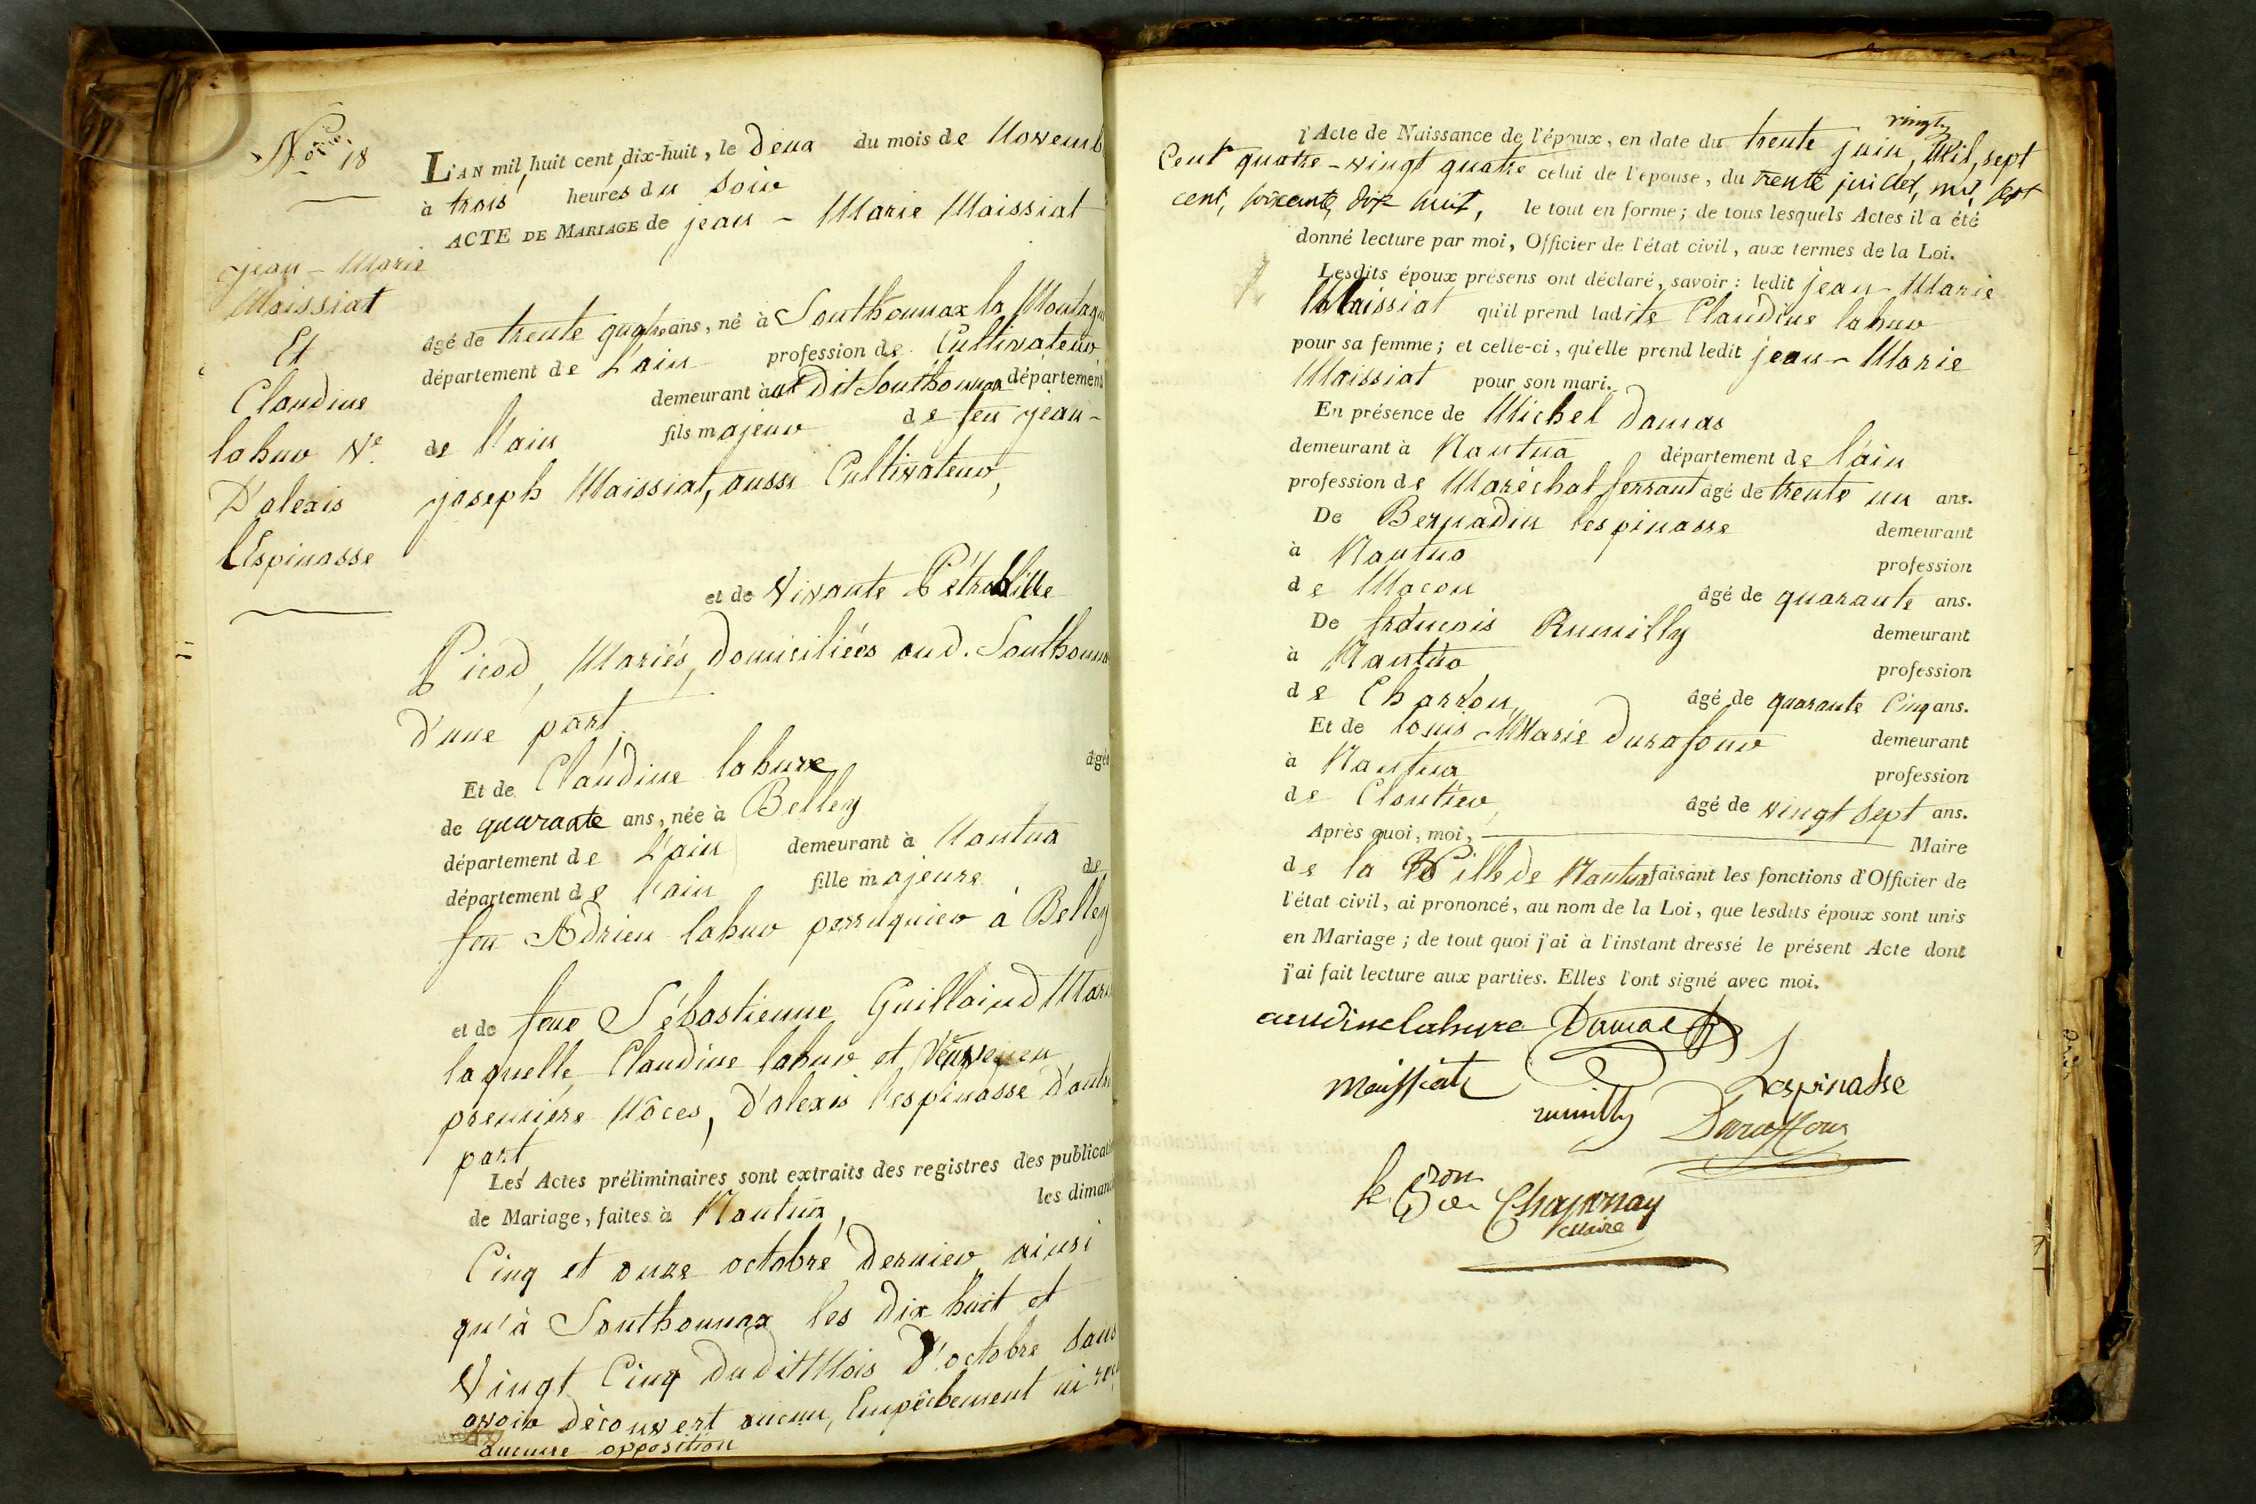 No. 18
Jean-Marie
Maissiat
Et
Claudine
lahuro Ve.
D'alexis
Lespinasse
L'AN mil huit cent dix-huit, le deux du mois de Novemb
à trois heures du Soir
ACTE DE MARIAGE de jean-Marie Maissiat
âgé de trente quatre ans, né à Southonnax la Montagn
département de L'ain profession de Cultivateur
demeurant à au dit Southonnax département
de l'ain fils majeur de feu jean-
joseph Maissiat, aussi Cultivateur,
et de Vivante Pétronille
Picod, Mariés, domiciliées aud. Southonna
d'une part
Et de Claudine lahure âgée
de quarante ans, née à Belley
département de L'ain demeurant à Nantua
département de l'ain fille majeure de
feu Adrien lahur perruquier à Belley
et de feue Sébastienne Guillaind Mari
laquelle Claudine lahur et Veuve en
première Nôces, d'alexis lespinasse D'autr
part
Les Actes préliminaires sont extraits des registres des publicati
de Mariage, faites à Nantua, les dimanc
Cinq et onze octobre dernier ainsi
qu'à Southonnax les dix huit et
Vingt Cinq dudit Mois d'octobre sans
avoir découvert aucun, Empêchement ni
aucune opposition
l'Acte de Naissance de l'époux, en date du trente juin, Mil, sept
vingt
Cent quatre-vingt quatre celui de l'épouse, du trente juillet, mil, sept
cent, soixante, dix huit, le tout en forme; de tous lesquels Actes il a été
donné lecture par moi, Officier de l'état civil, aux termes de la Loi.
Lesdits époux présens ont déclaré, savoir: ledit jean-Marie
Maissiat qu'il prend ladite Claudine lahur
pour sa femme; et celle-ci, qu'elle prend ledit jean-Marie
Maissiat pour son mari.
En présence de Michel Damas
demeurant à Nantua département de l'ain
profession de Maréchal ferrant âgé de trente un ans.
De Bernadin lespinasse demeurant
à Nantua profession
de Macon âgé de quarante ans.
De françois Rumilly demeurant
à Nantua profession
de Charron âgé de quarante Cinq ans.
Et de louis Marie durafour demeurant
à Nantua profession
de Cloutier, âgé de vingt sept ans.
Après quoi, moi, Maire
de la Ville de Nantua faisant les fonctions d'Officier de
l'état civil, ai prononcé, au nom de la Loi, que lesdits époux sont unis
en Mariage; de tout quoi j'ai à l'instant dressé le présent Acte dont
j'ai fait lecture aux parties. Elles l'ont signé avec moi.
claudine lahure Damas
Maissiat Lespinasse
rumilly Duraffour
le Bon de Chapnnay
Maire